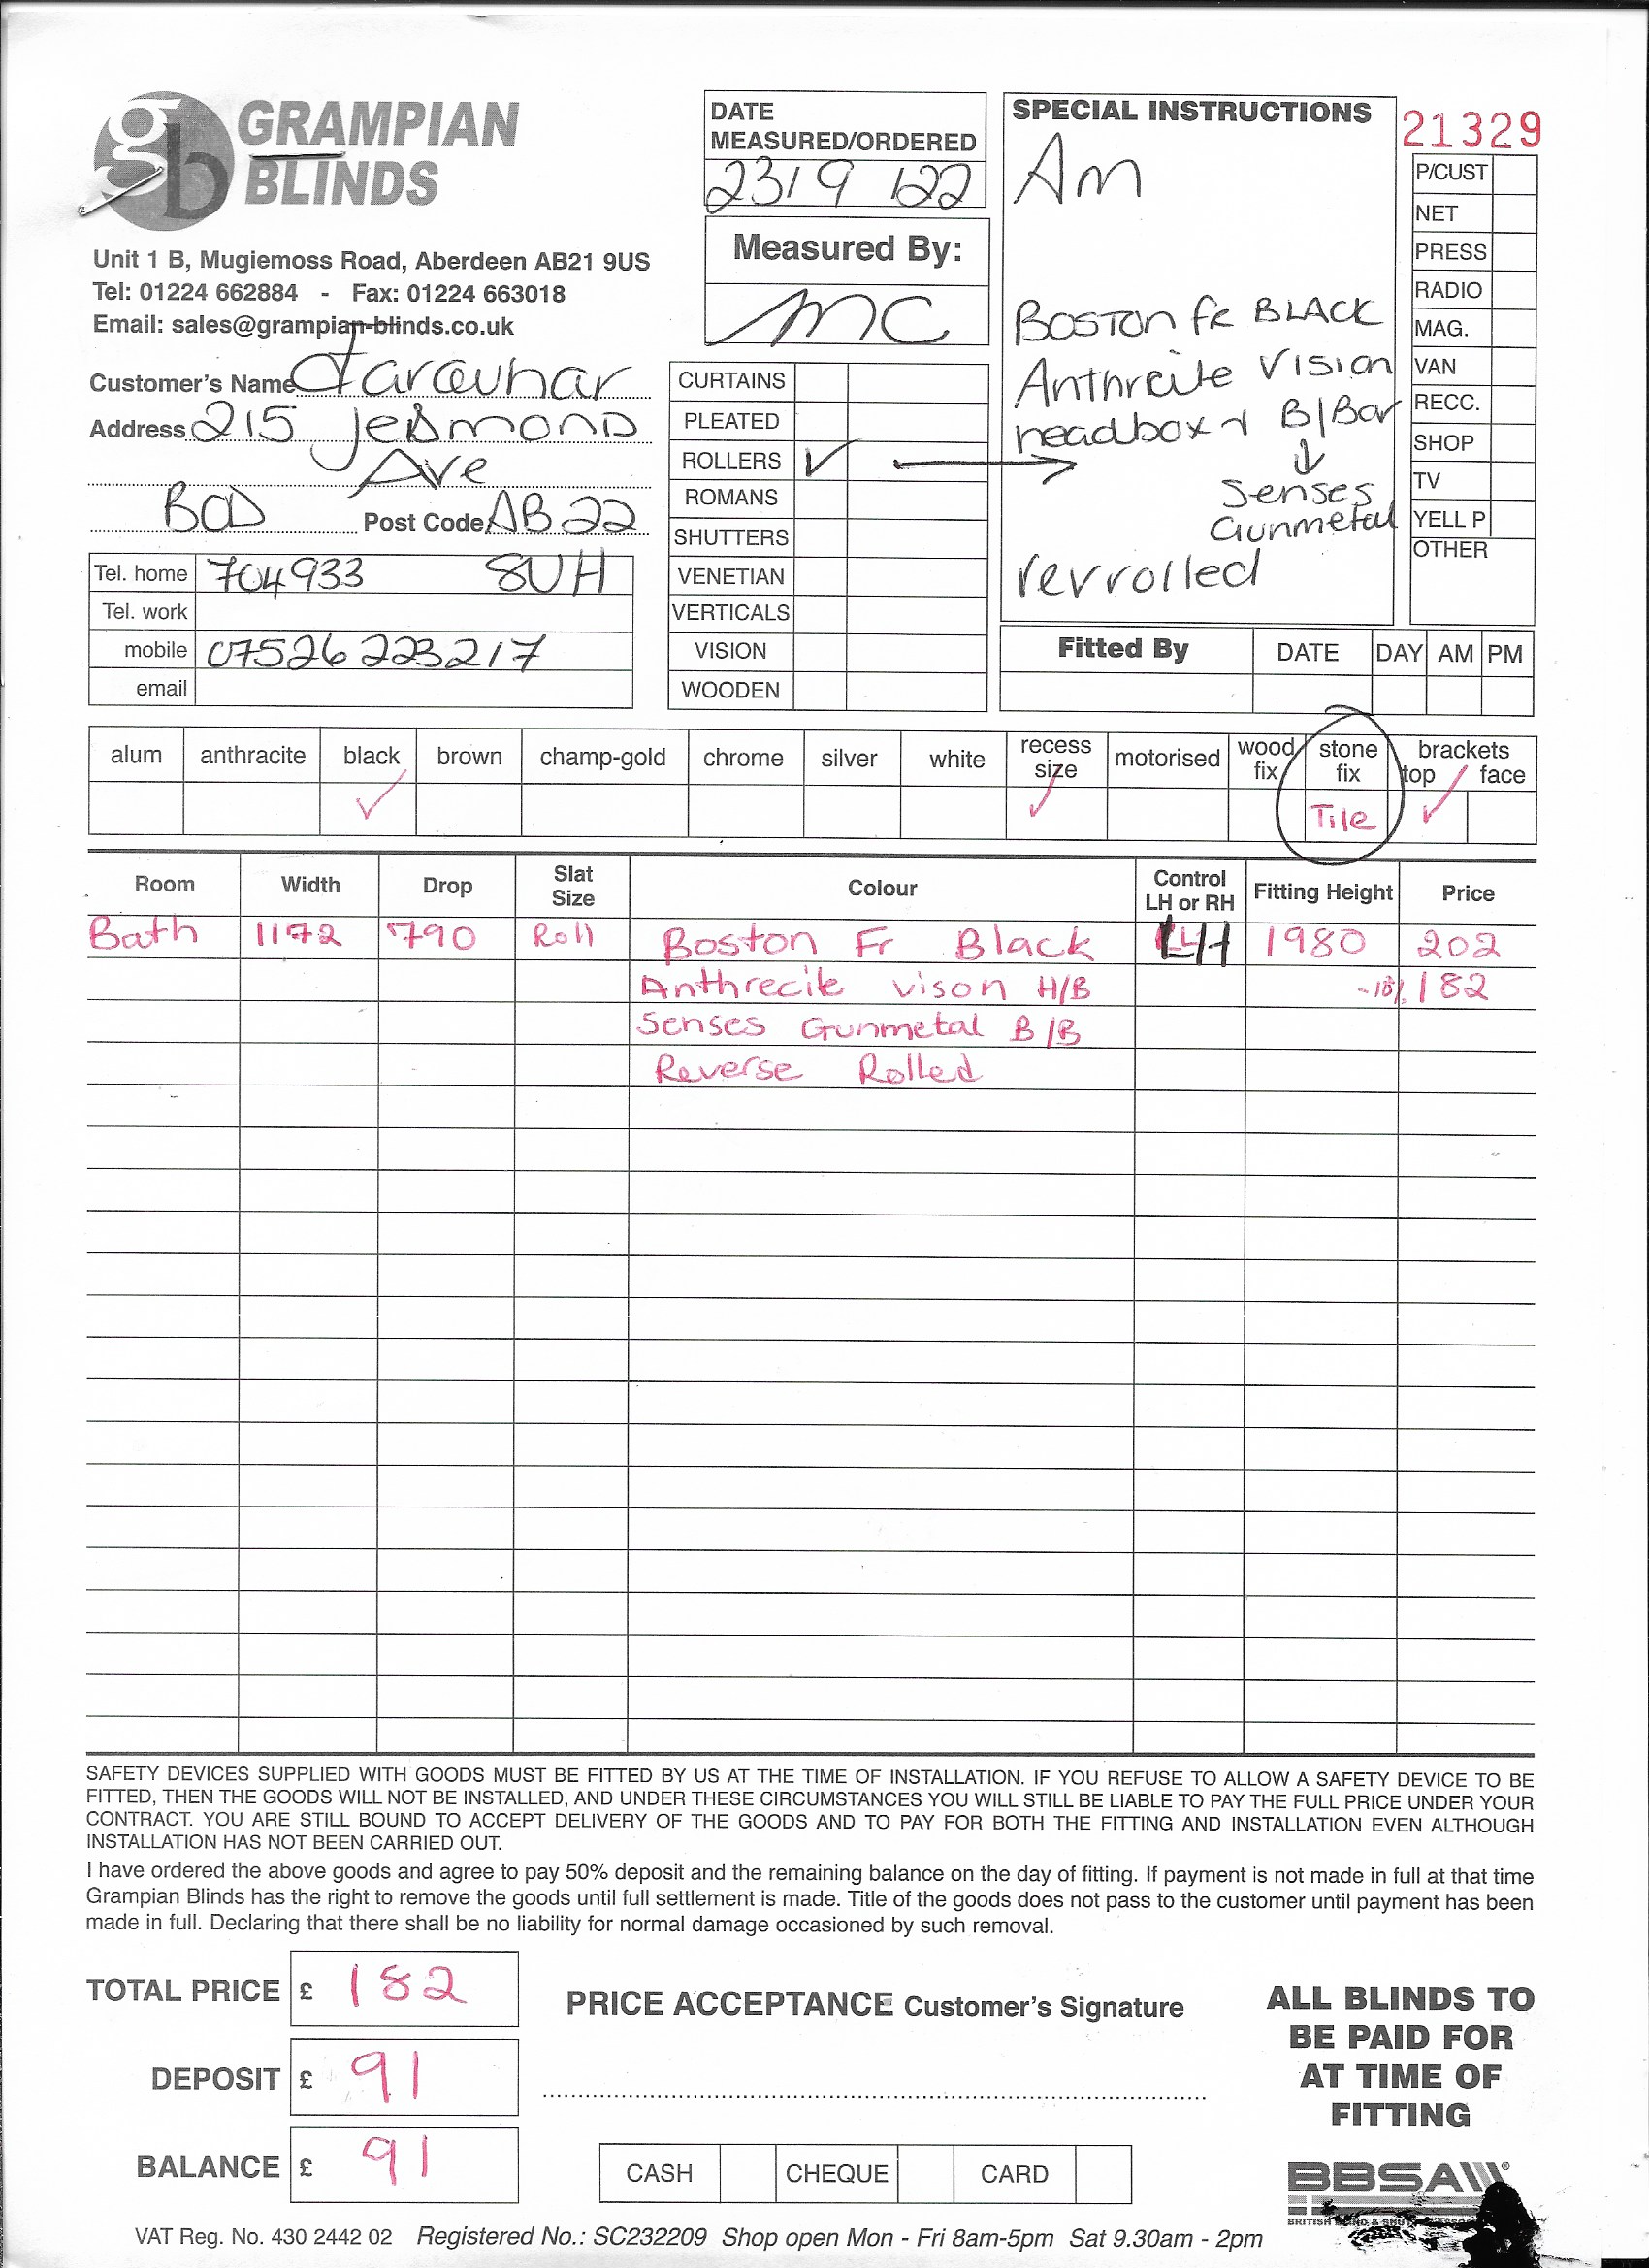 GRAMPIAN
BLINDS
Unit 1 B, Mugiemoss Road, Aberdeen AB21 9US
Tel: 01224 662884 - Fax: 01224 663018
Email: sales@grampian-blinds.co.uk
Customer's Name Farquhar
Address 215 Jesmond
Ave
BOD Post Code AB22
Tel. home 704933 8UH
Tel. work
mobile 07526 223217
email
DATE
MEASURED/ORDERED
23/9/22
Measured By:
MC
CURTAINS
PLEATED
ROLLERS ✓
ROMANS
SHUTTERS
VENETIAN
VERTICALS
VISION
WOODEN
SPECIAL INSTRUCTIONS
Am
BOSTON FR BLACK
Anthrcite Vision
headbox + B/Bar
↓
Senses
Gunmetal
rev rolled
21329
P/CUST
NET
PRESS
RADIO
MAG.
VAN
RECC.
SHOP
TV
YELL P
OTHER
Fitted By DATE DAY AM PM
alum anthracite black brown champ-gold chrome silver white recess size motorised wood fix stone fix brackets top face
✓ ✓ Tile ✓
Room Width Drop Slat Size Colour Control LH or RH Fitting Height Price
Bath 1172 790 Roll Boston Fr Black LH 1980 202
Anthrecite vison H/B -10% 182
Senses Gunmetal B/B
Reverse Rolled
SAFETY DEVICES SUPPLIED WITH GOODS MUST BE FITTED BY US AT THE TIME OF INSTALLATION. IF YOU REFUSE TO ALLOW A SAFETY DEVICE TO BE
FITTED, THEN THE GOODS WILL NOT BE INSTALLED, AND UNDER THESE CIRCUMSTANCES YOU WILL STILL BE LIABLE TO PAY THE FULL PRICE UNDER YOUR
CONTRACT. YOU ARE STILL BOUND TO ACCEPT DELIVERY OF THE GOODS AND TO PAY FOR BOTH THE FITTING AND INSTALLATION EVEN ALTHOUGH
INSTALLATION HAS NOT BEEN CARRIED OUT.
I have ordered the above goods and agree to pay 50% deposit and the remaining balance on the day of fitting. If payment is not made in full at that time
Grampian Blinds has the right to remove the goods until full settlement is made. Title of the goods does not pass to the customer until payment has been
made in full. Declaring that there shall be no liability for normal damage occasioned by such removal.
TOTAL PRICE £ 182
DEPOSIT £ 91
BALANCE £ 91
PRICE ACCEPTANCE Customer's Signature
CASH CHEQUE CARD
ALL BLINDS TO
BE PAID FOR
AT TIME OF
FITTING
BBSA
BRITISH
VAT Reg. No. 430 2442 02 Registered No.: SC232209 Shop open Mon - Fri 8am-5pm Sat 9.30am - 2pm